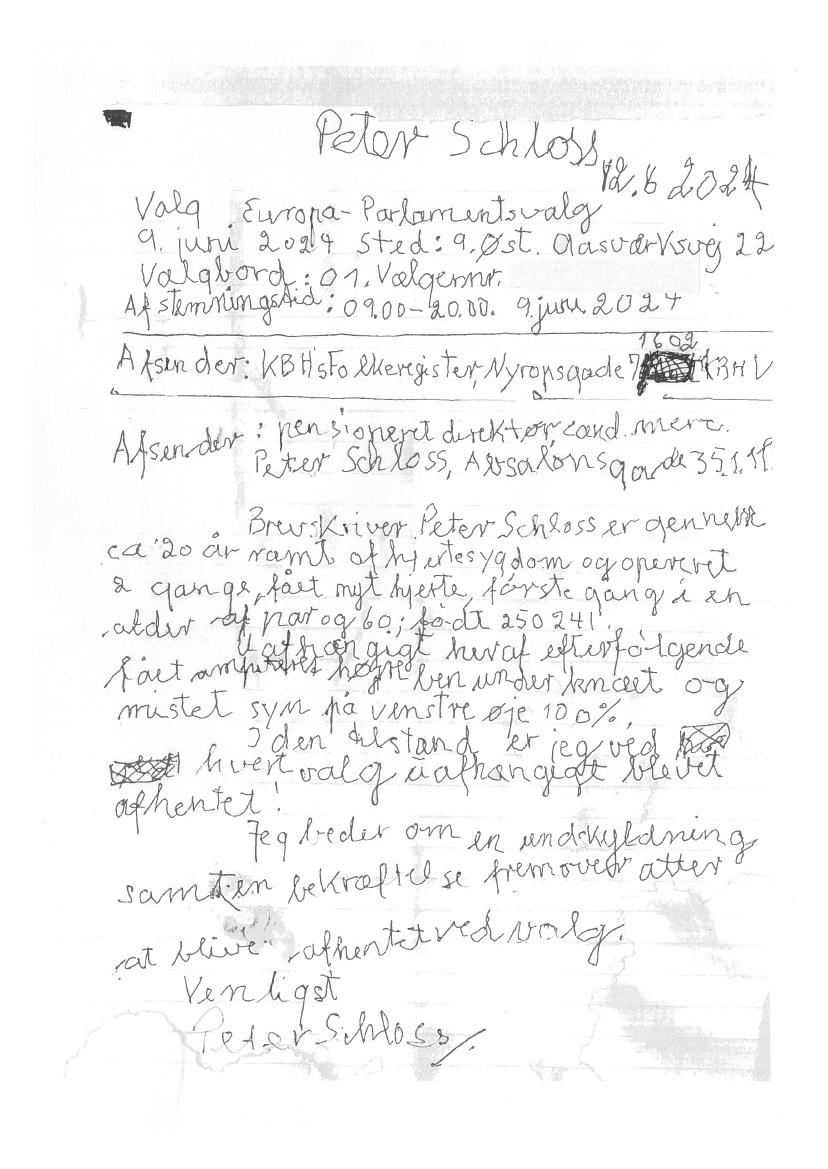 Peter Schloss
12.6 2024
Valg Europa-Parlamentsvalg
9. juni 2024 Sted: 9. Øst. Aasværksvej 22
Valgbord: 01. Vælgernr.
Afstemningstid: 09.00-20.00. 9. juni 2024
1602
Afsender: KBHs Folkeregister, Nyropsgade 7 KBH V
Afsender: pensioneret direktør, cand. merc.
Peter Schloss, Absalonsgade 35 1.
Brevskriver Peter Schloss er gennem
ca 20 år ramt af hjertesygdom og opereret
2 gange, fået nyt hjerte, første gang i en
alder af par og 60; født 250241.
Uafhængigt heraf efterfølgende
fået amputeret højre ben under knæet og
mistet syn på venstre øje 100%.
I den tilstand er jeg ved
hvert valg uafhængigt blevet
afhentet!
Jeg beder om en undskyldning
samt en bekræftelse fremover atter
at blive afhentet ved valg.
Venligst
Peter Schloss